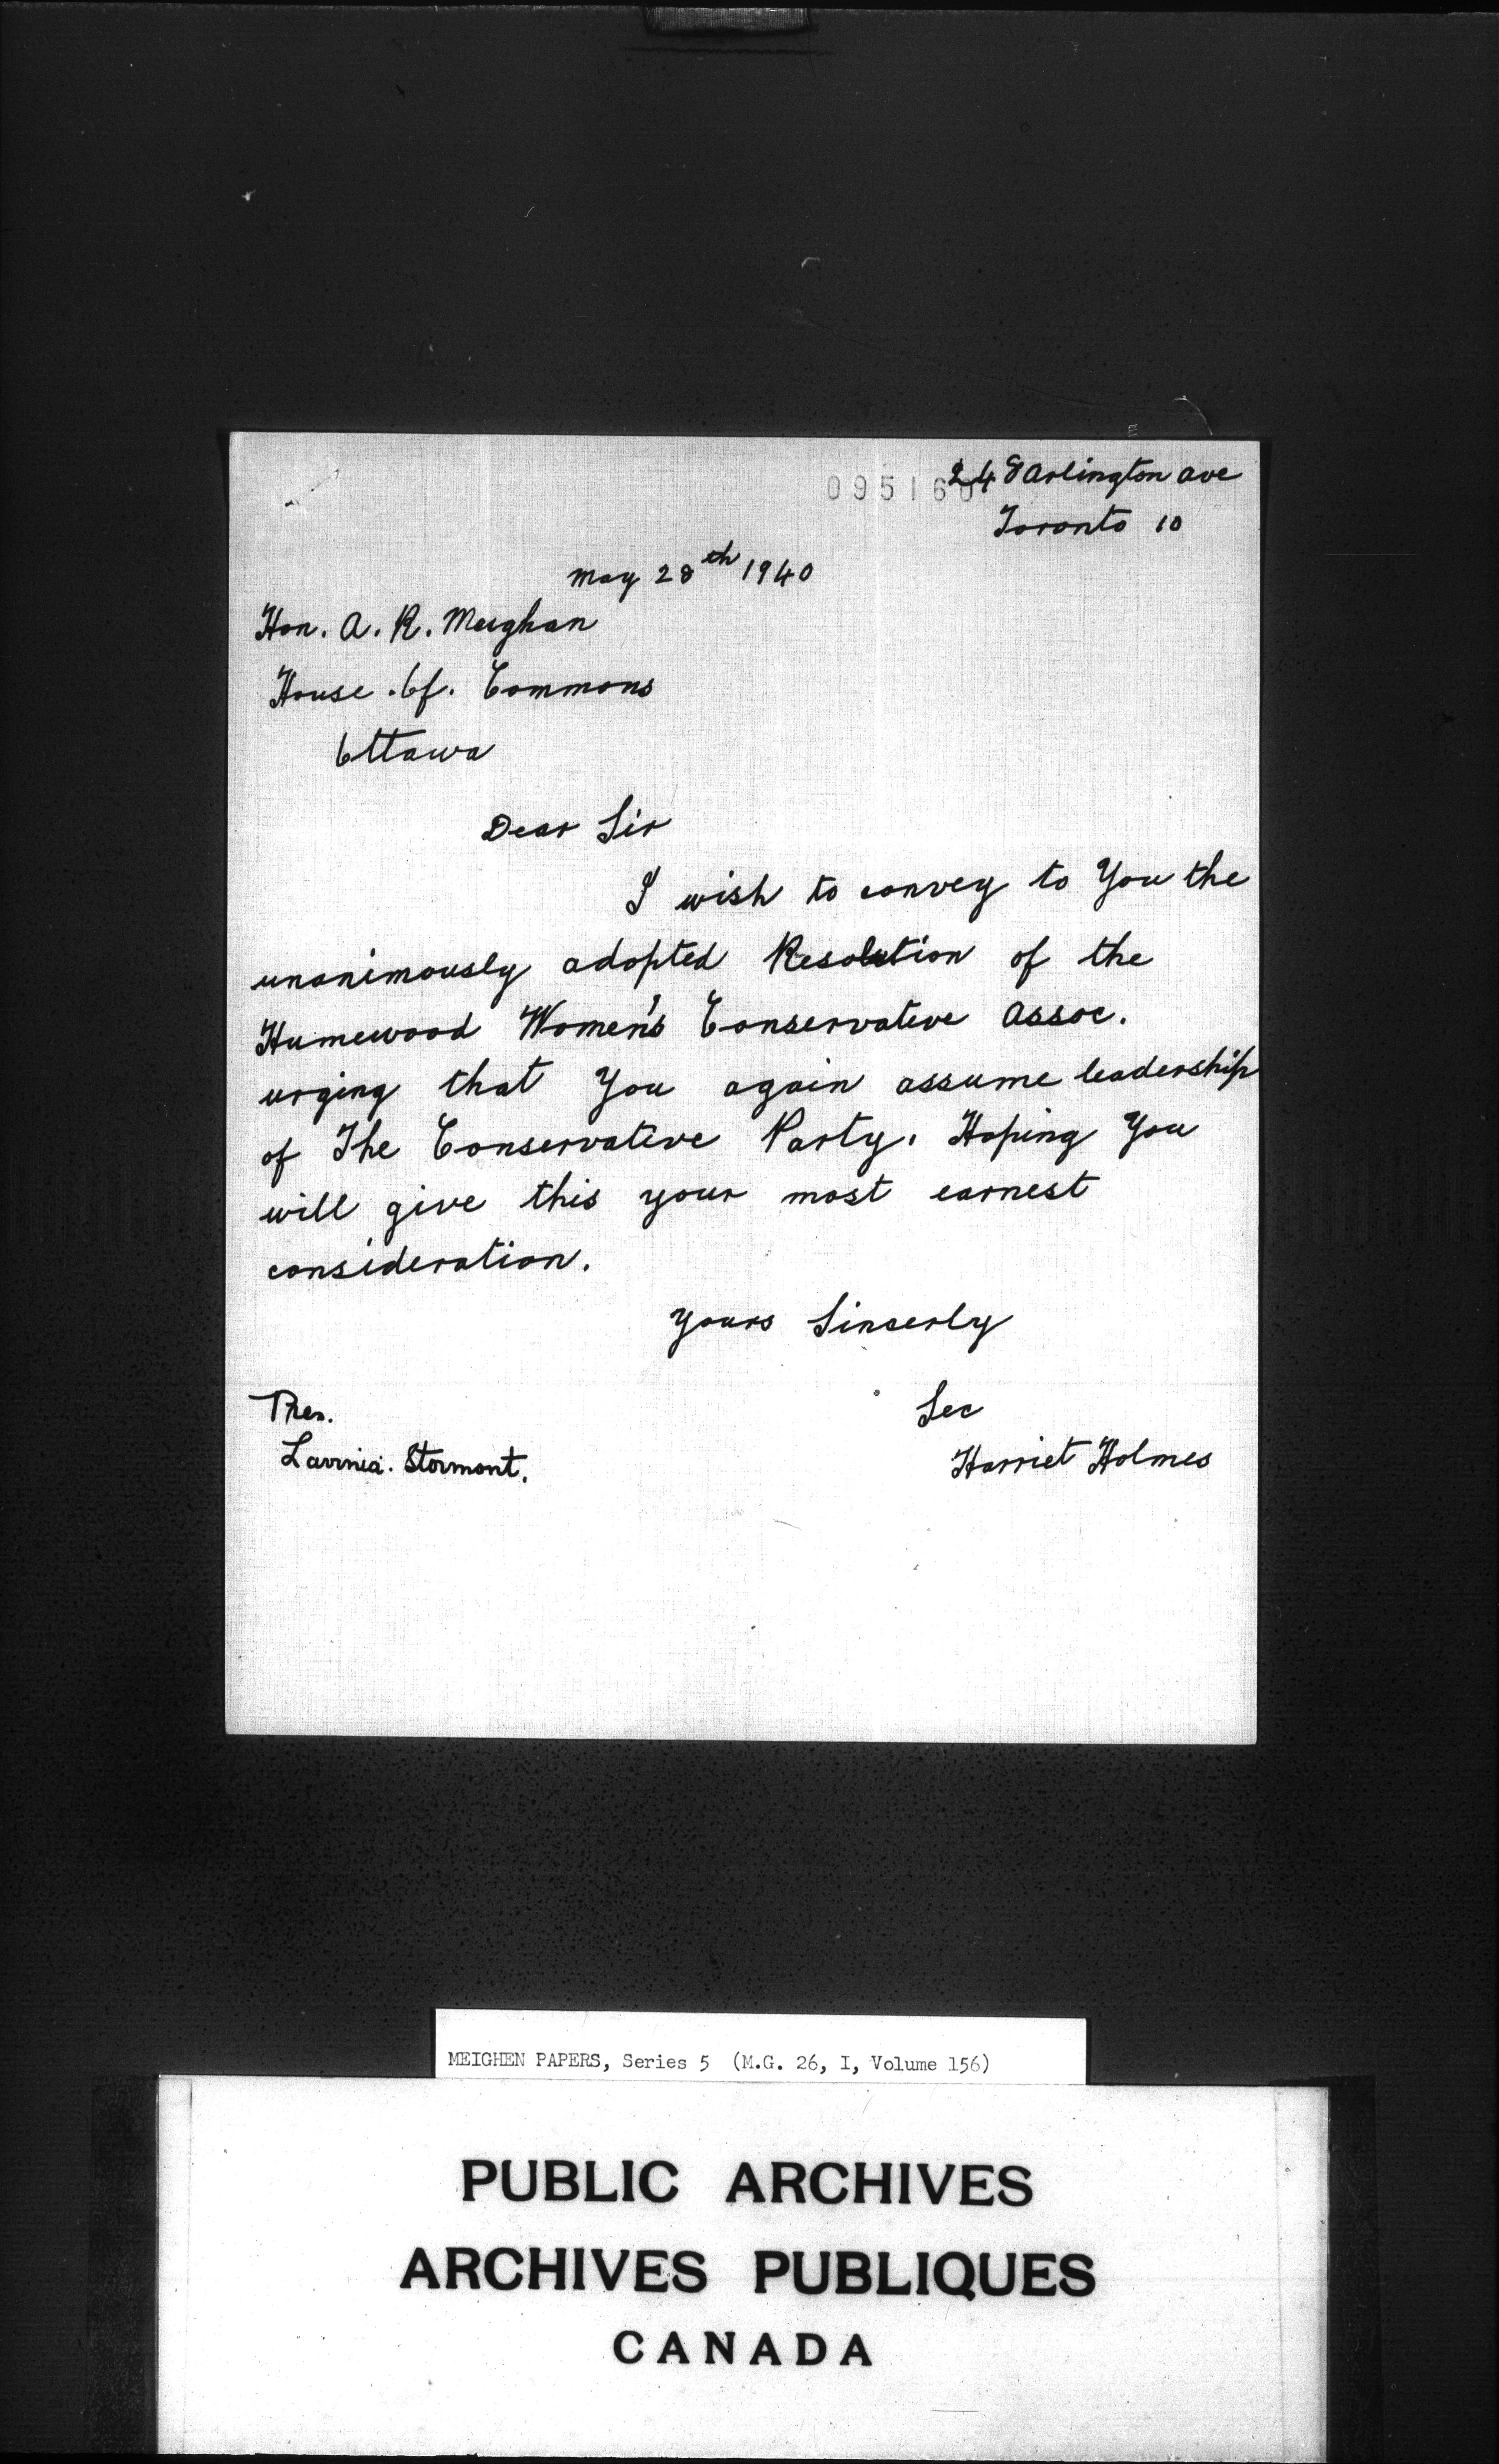 095160
248 Arlington Ave
Toronto 10
May 28th 1940
Hon. A. R. Meighan
House . Of . Commons
Ottawa
Dear Sir
I wish to convey to You the
unanimously adopted Resolution of the
Humewood Women's Conservative Assoc.
urging that You again assume leadership
of The Conservative Party. Hoping You
will give this your most earnest
consideration.
Yours Sincerly
Pres.
Lavinia. Stormont.
Sec
Harriet Holmes
MEIGHEN PAPERS, Series 5 (M.G. 26, I, Volume 156)
PUBLIC ARCHIVES
ARCHIVES PUBLIQUES
CANADA